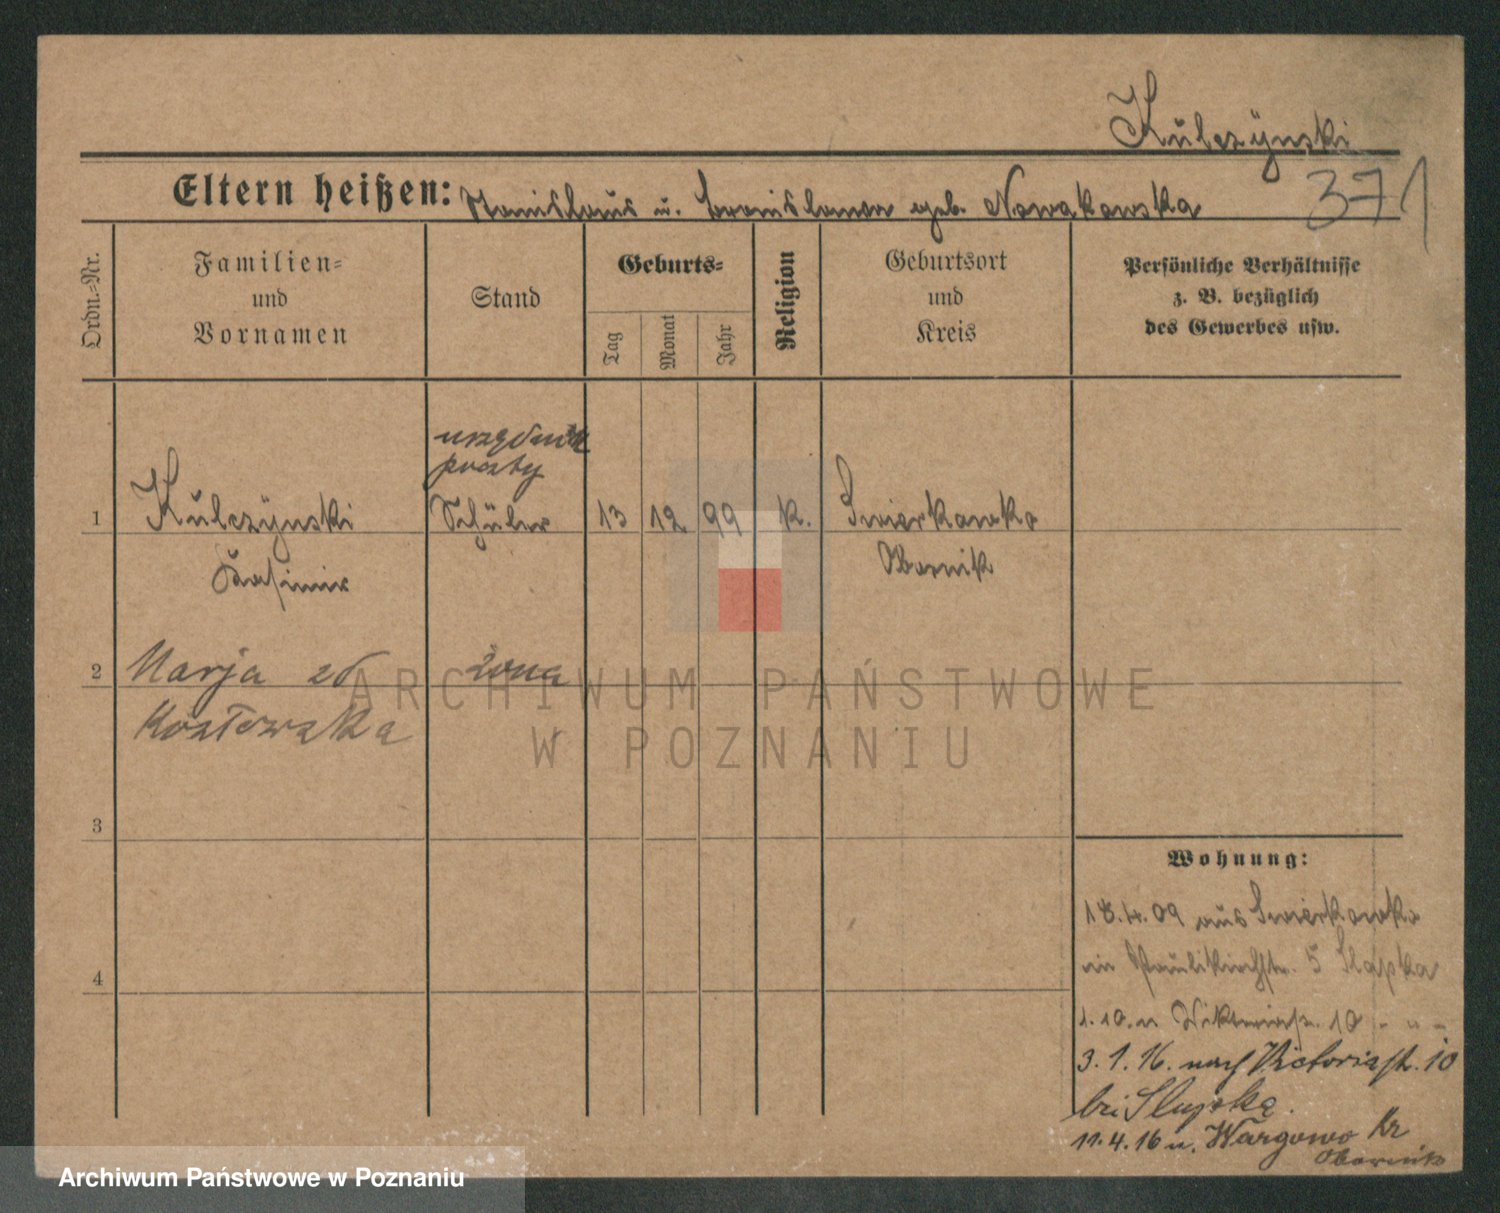 Kulczynski
371
Eltern heißen: Stanislaus u. Bronislawa geb. Nowakowska
Ordn.-Nr.
Familien-
und
Vornamen
Stand
Geburts-
Tag
Monat
Jahr
Religion
Geburtsort
und
Kreis
Persönliche Verhältnisse
z. B. bezüglich
des Gewerbes usw.
urzędnik
poczty
1 Kulczynski Schüler 13 12 99 k. Swierkowko
Kasimir Obornik
2 Marja zd żona
Kozłowska
3
4
Wohnung:
18.4.09 aus Swierkowko
in Paulikirchstr. 5 Slapka
1.10. n Viktoriastr. 10 - " -
3.1.16. nach Victoriastr. 10
bei Slupska.
11.4.16 n. Wargowo Kr
Obornik
ARCHIWUM PAŃSTWOWE
W POZNANIU
Archiwum Państwowe w Poznaniu